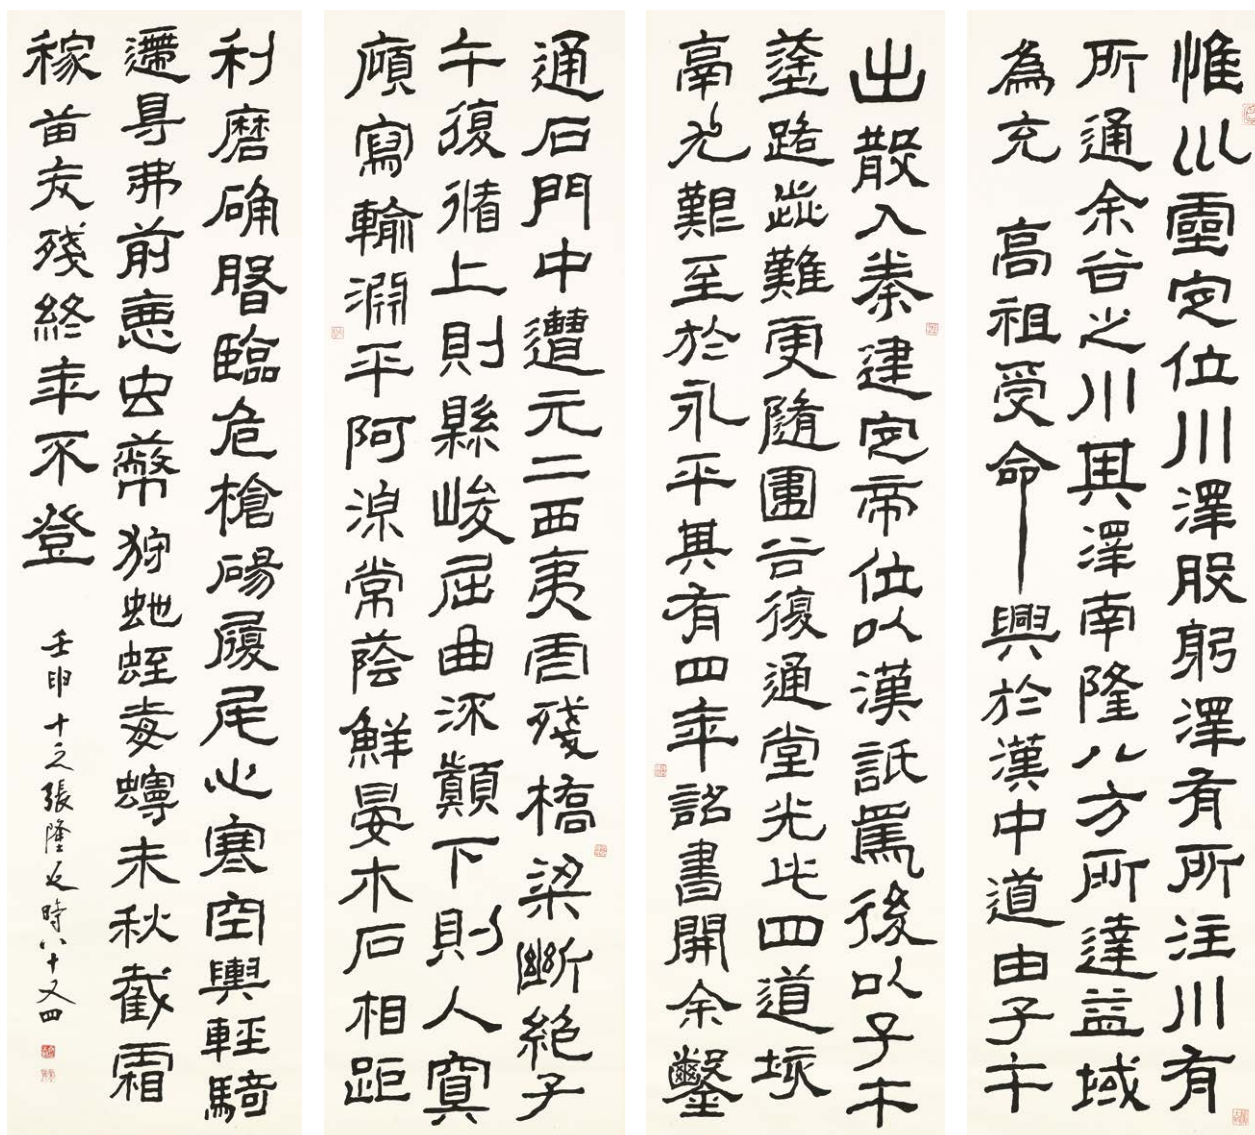 惟巛靈定位川澤股躬澤有所注川有
所通余谷之川其澤南隆八方所達益域
為充 高祖受命興於漢中道由子午
出散入秦建定帝位以漢詆焉後以子午
塗路歰難更隨圍谷復通堂光此四道垓
鬲尤艱至於永平其有四年詔書開余鑿
通石門中遭元二西夷虐殘橋梁斷絕子
午復循上則縣峻屈曲流顛下則人冥
廎寫輸淵平阿湶常蔭鮮晏木石相距
利磨确臨危槍碭履尾心寒空輿輕騎
遰㝵弗前惡虫幣狩虵蛭毒蟃未秋截霜
稼苗夭殘終年不登
壬申十之張隆延時八十又四